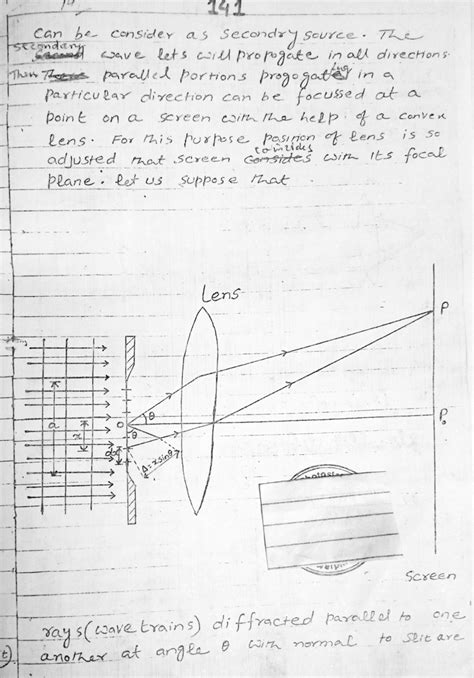 141
can be consider as secondry source. The
secondary wave lets will propogate in all directions.
Then parallel portions progogating in a
particular direction can be focussed at a
point on a screen with the help of a convex
lens. For this purpose position of lens is so
adjusted that screen coinsides with its focal
plane. let us suppose that
Lens
P
θ
a
x
O
θ
P₀
dx
Δ=xsinθ
Screen
rays (wave trains) diffracted parallel to one
another at angle θ with normal to slit are